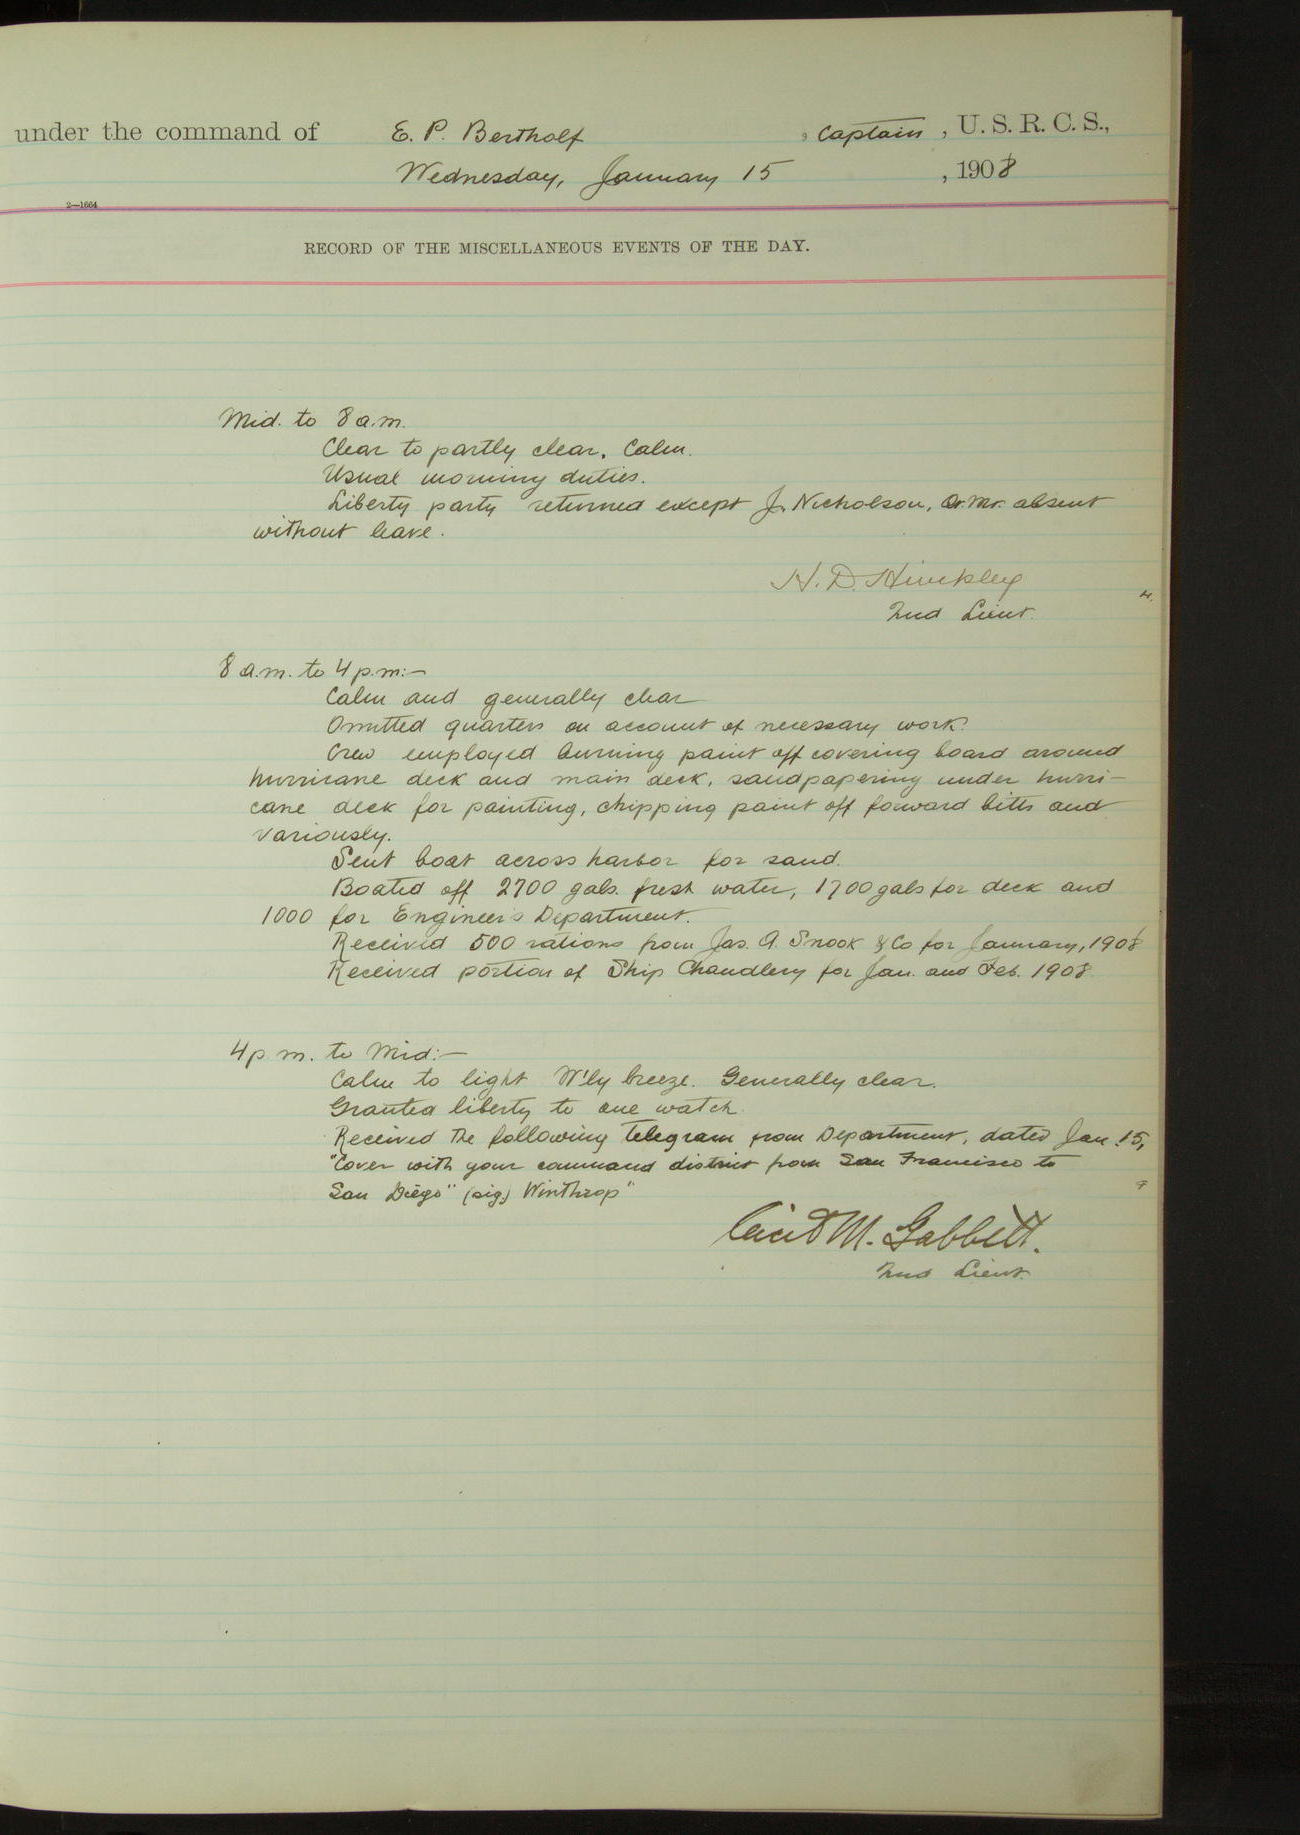 under the command of E. P. Bertholf, Captain, U. S. R. C. S.,
Wednesday, January 15, 1908
2—1664
RECORD OF THE MISCELLANEOUS EVENTS OF THE DAY.
Mid. to 8 a.m.
Clear to partly clear. Calm.
Usual morning duties.
Liberty party returned except J. Nicholson, absent
without leave.
H. D. Hinckley
2nd Lieut.
8 a.m. to 4 p.m:—
Calm and generally clear
Omitted quarters on account of necessary work.
Crew employed burning paint off covering board around
hurricane deck and main deck, sandpapering under hurri-
cane deck for painting, chipping paint off forward bitts and
variously.
Sent boat across harbor for sand.
Boated off 2700 gals. fresh water, 1700 gals for deck and
1000 for Engineer's Department.
Received 500 rations from Jas. A. Snook & Co for January, 1908
Received portion of Ship Chandlery for Jan. and Feb. 1908
4 p m. to Mid:—
Calm to light W'ly breeze. Generally clear.
Granted liberty to one watch.
Received the following telegram from Department, dated Jan. 15,
"Cover with your command district from San Francisco to
San Diego" (sig) Winthrop"
M. Gabbett.
2nd Lieut.